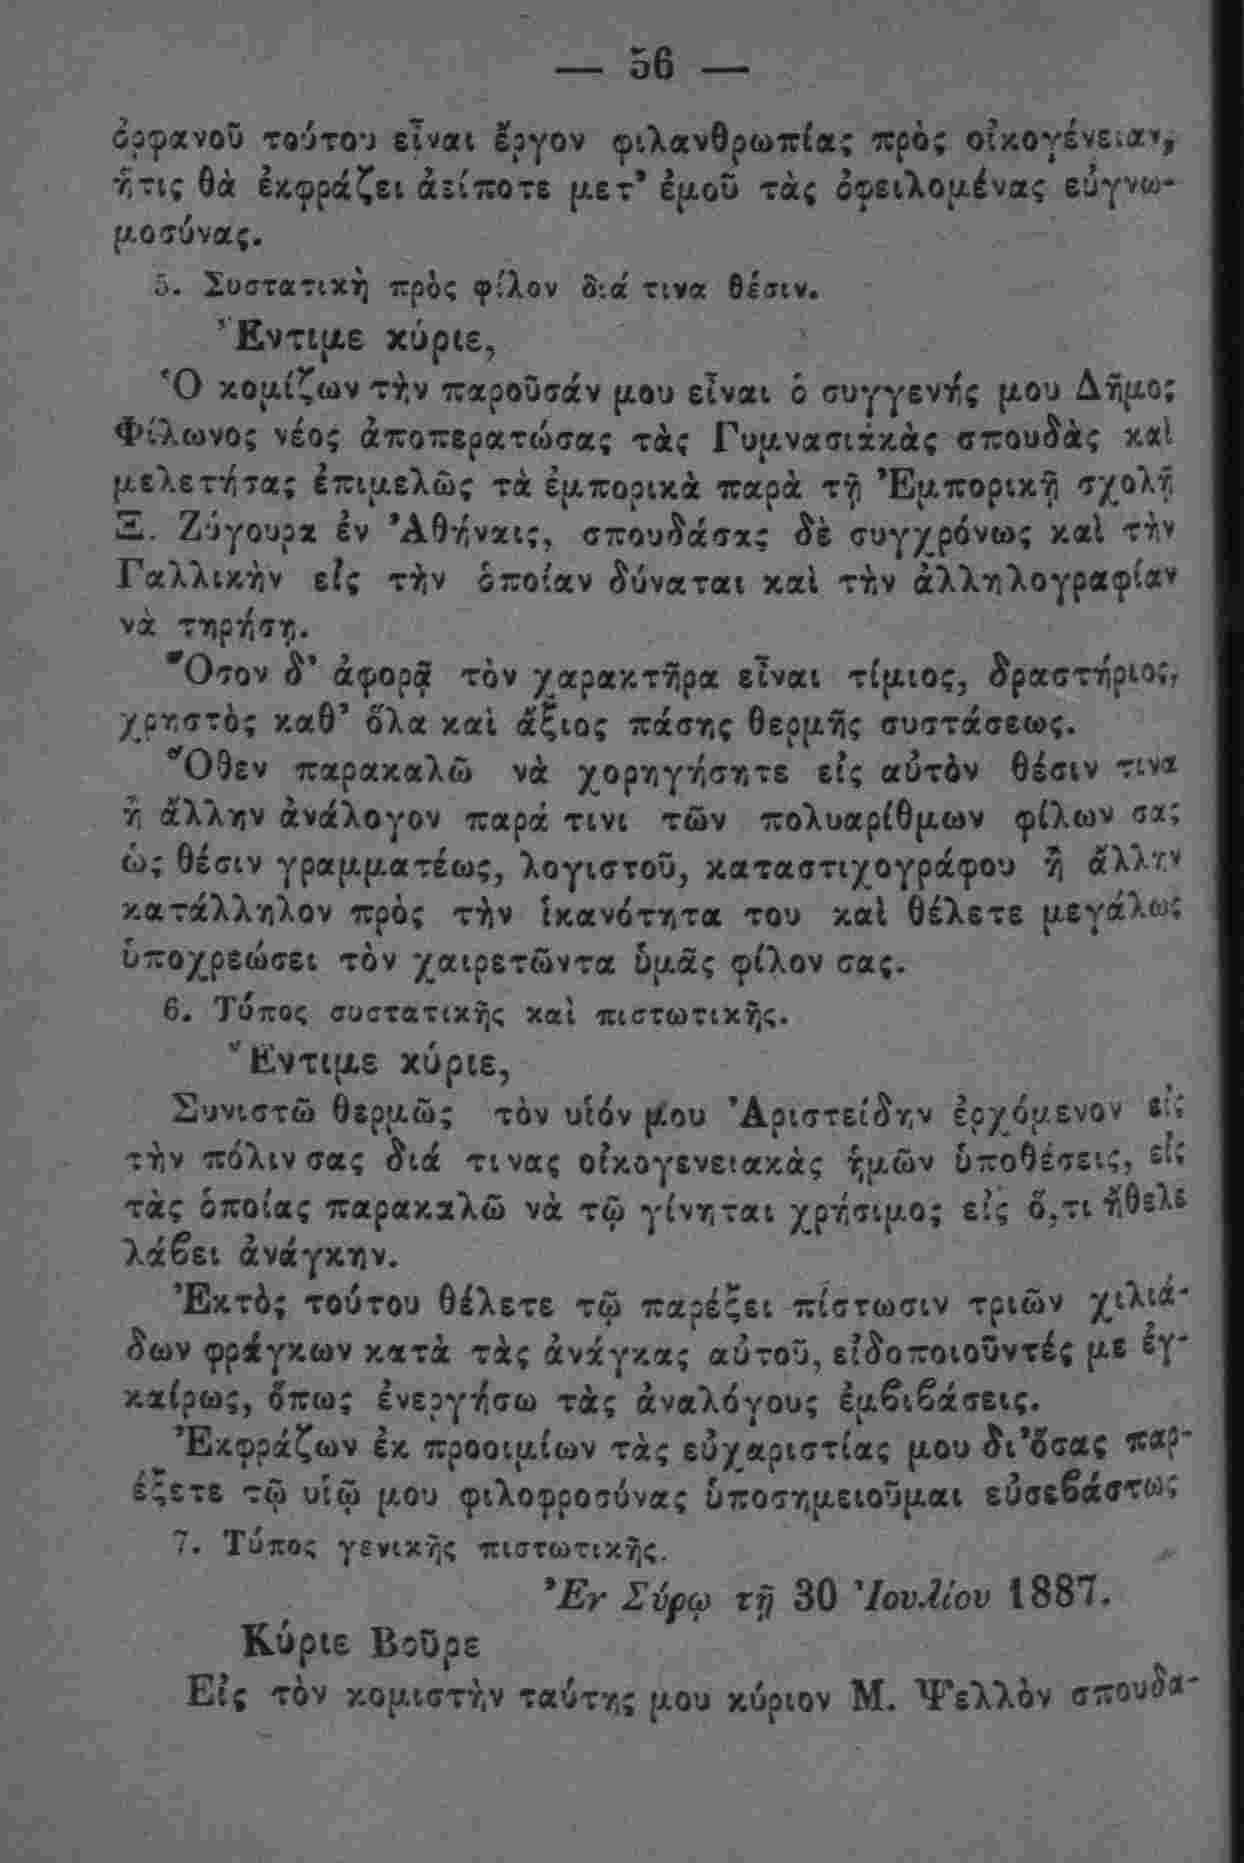 — 56 —
ὀρφανοῦ τούτου εἶναι ἔργον φιλανθρωπίας πρὸς οἰκογένειαν,
ἥτις θὰ ἐκφράζει ἀείποτε μετ' ἐμοῦ τὰς ὀφειλομένας εὐγνω-
μοσύνας.
5. Συστατικὴ πρὸς φίλον διά τινα θέσιν.
Ἔντιμε κύριε,
Ὁ κομίζων τὴν παροῦσάν μου εἶναι ὁ συγγενής μου Δῆμος
Φίλωνος νέος ἀποπερατώσας τὰς Γυμνασιακὰς σπουδὰς καὶ
μελετήσας ἐπιμελῶς τὰ ἐμπορικὰ παρὰ τῇ Ἐμπορικῇ σχολῇ
Ξ. Ζύγουρα ἐν Ἀθήναις, σπουδάσας δὲ συγχρόνως καὶ τὴν
Γαλλικὴν εἰς τὴν ὁποίαν δύναται καὶ τὴν ἀλληλογραφίαν
νὰ τηρήσῃ.
Ὅσον δ' ἀφορᾷ τὸν χαρακτῆρα εἶναι τίμιος, δραστήριος,
χρηστὸς καθ' ὅλα καὶ ἄξιος πάσης θερμῆς συστάσεως.
Ὅθεν παρακαλῶ νὰ χορηγήσητε εἰς αὐτὸν θέσιν τινα
ἢ ἄλλην ἀνάλογον παρά τινι τῶν πολυαρίθμων φίλων σας
ὡς θέσιν γραμματέως, λογιστοῦ, καταστιχογράφου ἢ ἄλλην
κατάλληλον πρὸς τὴν ἱκανότητα του καὶ θέλετε μεγάλως
ὑποχρεώσει τὸν χαιρετῶντα ὑμᾶς φίλον σας.
6. Τύπος συστατικῆς καὶ πιστωτικῆς.
Ἔντιμε κύριε,
Συνιστῶ θερμῶς τὸν υἱόν μου Ἀριστείδην ἐρχόμενον εἰς
τὴν πόλιν σας διά τινας οἰκογενειακὰς ἡμῶν ὑποθέσεις, εἰς
τὰς ὁποίας παρακαλῶ νὰ τῷ γίνηται χρήσιμος εἰς ὅ,τι ἤθελε
λάβει ἀνάγκην.
Ἐκτὸς τούτου θέλετε τῷ παρέξει πίστωσιν τριῶν χιλιά-
δων φράγκων κατὰ τὰς ἀνάγκας αὐτοῦ, εἰδοποιοῦντές με ἐγ-
καίρως, ὅπως ἐνεργήσω τὰς ἀναλόγους ἐμβιβάσεις.
Ἐκφράζων ἐκ προοιμίων τὰς εὐχαριστίας μου δι' ὅσας παρ-
έξετε τῷ υἱῷ μου φιλοφροσύνας ὑποσημειοῦμαι εὐσεβάστως
7. Τύπος γενικῆς πιστωτικῆς.
Ἐν Σύρῳ τῇ 30 Ἰουλίου 1887.
Κύριε Βοῦρε
Εἰς τὸν κομιστὴν ταύτης μου κύριον Μ. Ψελλὸν σπουδα-